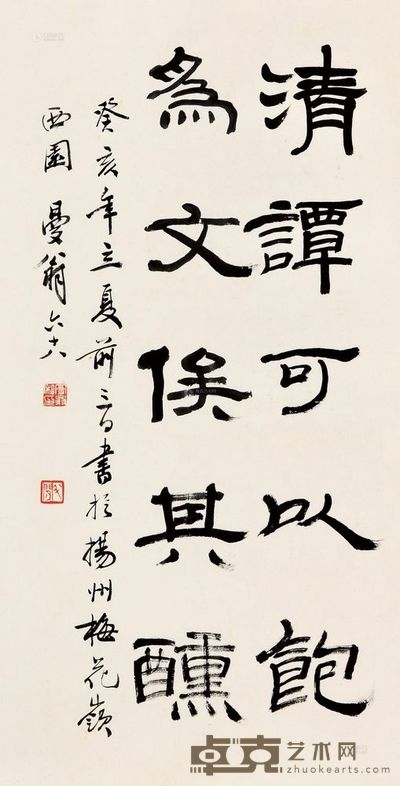 清譚可以飽
為文俟其醺
癸亥年立夏前三日書於揚州梅花嶺
西園 曼翁六十八
卓克艺术网
zhuokearts.com